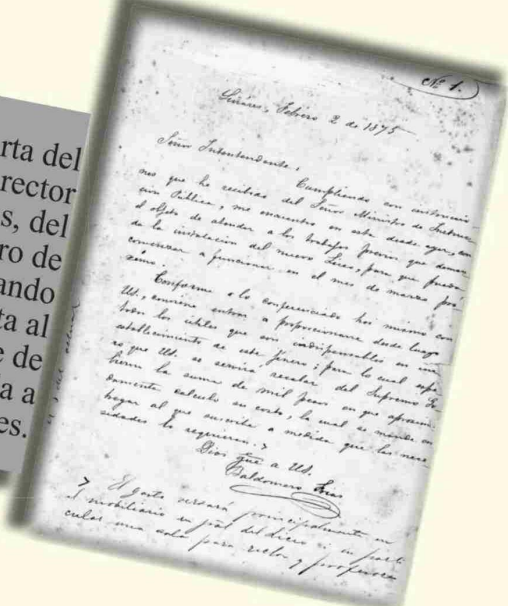 rta del
rector
s, del
ro de
ando
ta al
e de
a a
es.
Nº 1.
Febrero 2 de 1875
Señor Intendente.
Cumpliendo con instruccio
nes que he recibido del Señor Ministro de Instruc
cion Pública, me encuentro en esta desde ayer, con
el objeto de atender a los trabajos previos que deman
de la instalacion del nuevo Liceo, para que pueda
comenzar a funcionar en el mes de marzo pró
ximo.
Conforme a lo conferenciado hoy mismo con
Ud., convine entrar a proporcionarme desde luego
todos los útiles que son indispensables en un
establecimiento de este jénero; para lo cual espe
ro que Ud. se servirá recabar del Supremo Go
bierno la suma de mil pesos en que aproxim
damente calculo su costo, la cual se pondrá en
a medida que las nece
sidades lo requieran.
Dios gue a Ud.
Baldomero
El gasto versará principalmente en
el mobiliario
una sala para rector y profesores